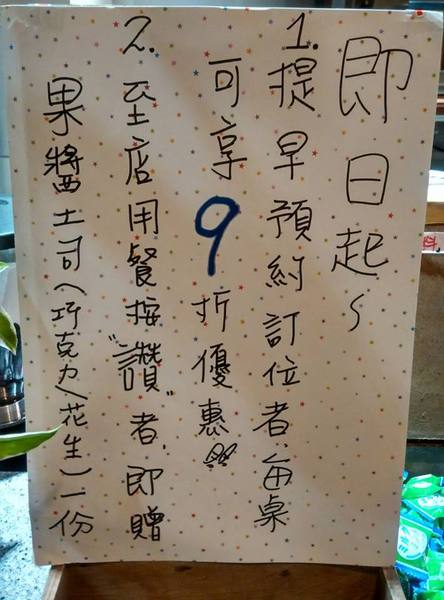 即日起~
1.提早預約訂位者,每桌
可享9折優惠
2.至店用餐按"讚"者,即贈
果醬土司(巧克力/花生)一份